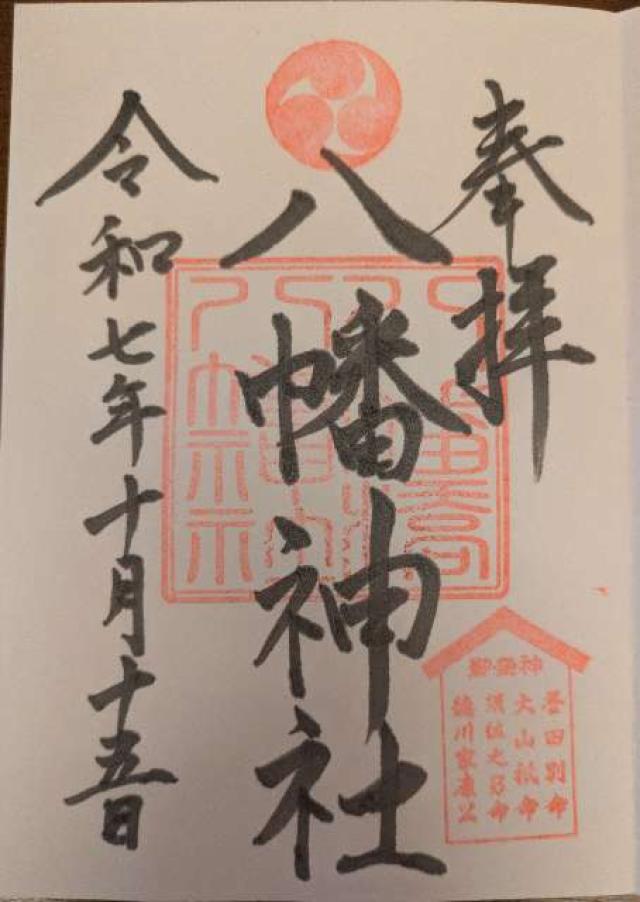 奉拝
八幡神社
令和七年十月十五日
御祭神
誉田別命
大山祇命
須佐之男命
徳川家康公